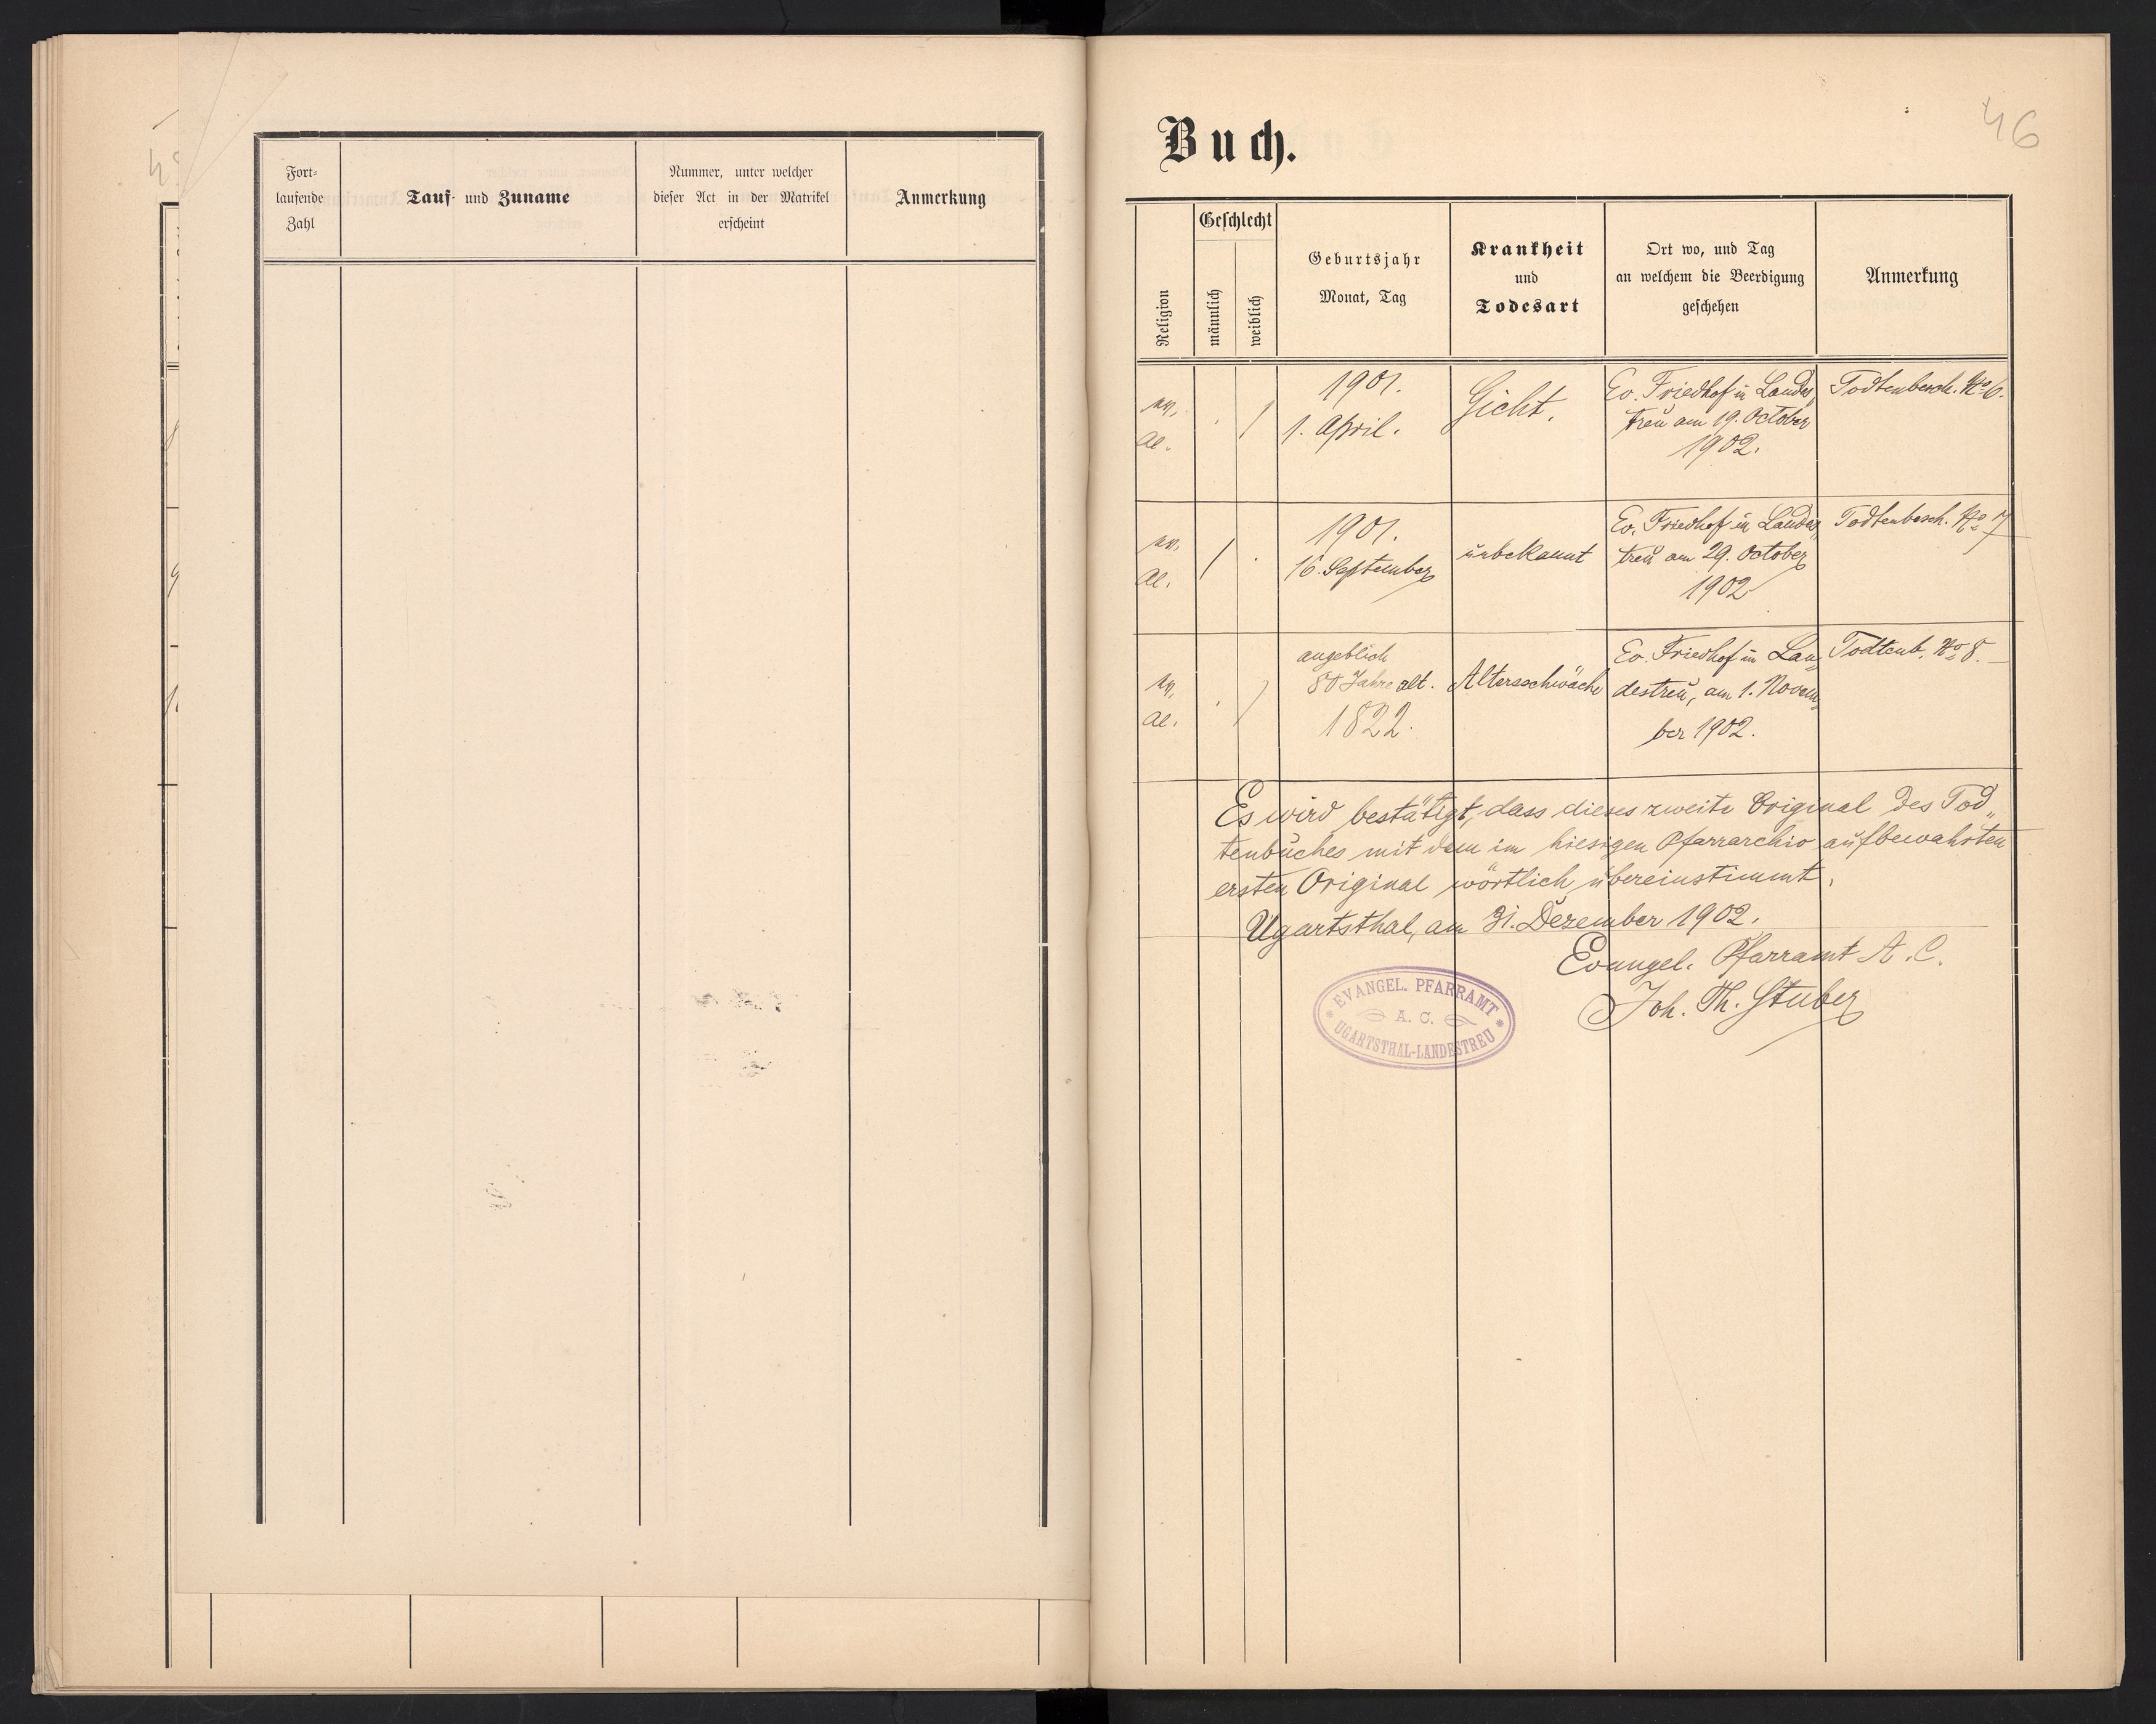 Fort-
laufende
Zahl
Tauf- und Zuname
Nummer, unter welcher
dieser Act in der Matrikel
erscheint
Anmerkung
46
Buch.
Religion
Geschlecht
männlich
weiblich
Geburtsjahr
Monat, Tag
Krankheit
und
Todesart
Ort wo, und Tag
an welchem die Beerdigung
geschehen
Anmerkung
1901.
1. April.
Gicht.
Ev. Friedhof in Landes„
treu am 19. October
1902.
Todtenbesch. No 6.
1901.
16. September
unbekannt
Ev. Friedhof in Landes„
treu am 29. October
1902
Todtenbesch. No 7
angeblich
80 Jahre alt.
1822.
Altersschwäche
Ev. Friedhof in Lan„
destreu, am 1. Novem„
ber 1902.
Todtenb. No 8.
Es wird bestätigt, dass dieses zweite Original des Tod„
tenbuches mit dem im hiesigen Pfarrarchiv aufbewahrten
ersten Original wörtlich übereinstimmt.
Ugartsthal, am 31. Dezember 1902.
Evangel. Pfarramt A. C.
Joh. Th. Stuber
EVANGEL. PFARRAMT
A. C.
UGARTSTHAL-LANDESTREU